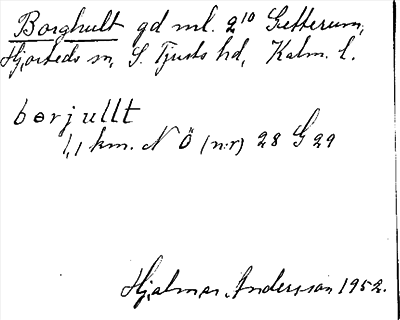 Borghult gd ml. 2¹⁰ Getterum,
Hjorteds sn, S. Tjusts hd, Kalm. l.
borjullt
1,1 km. N Ö (n:r) 28 G 29
Hjalmar Andersson 1952.